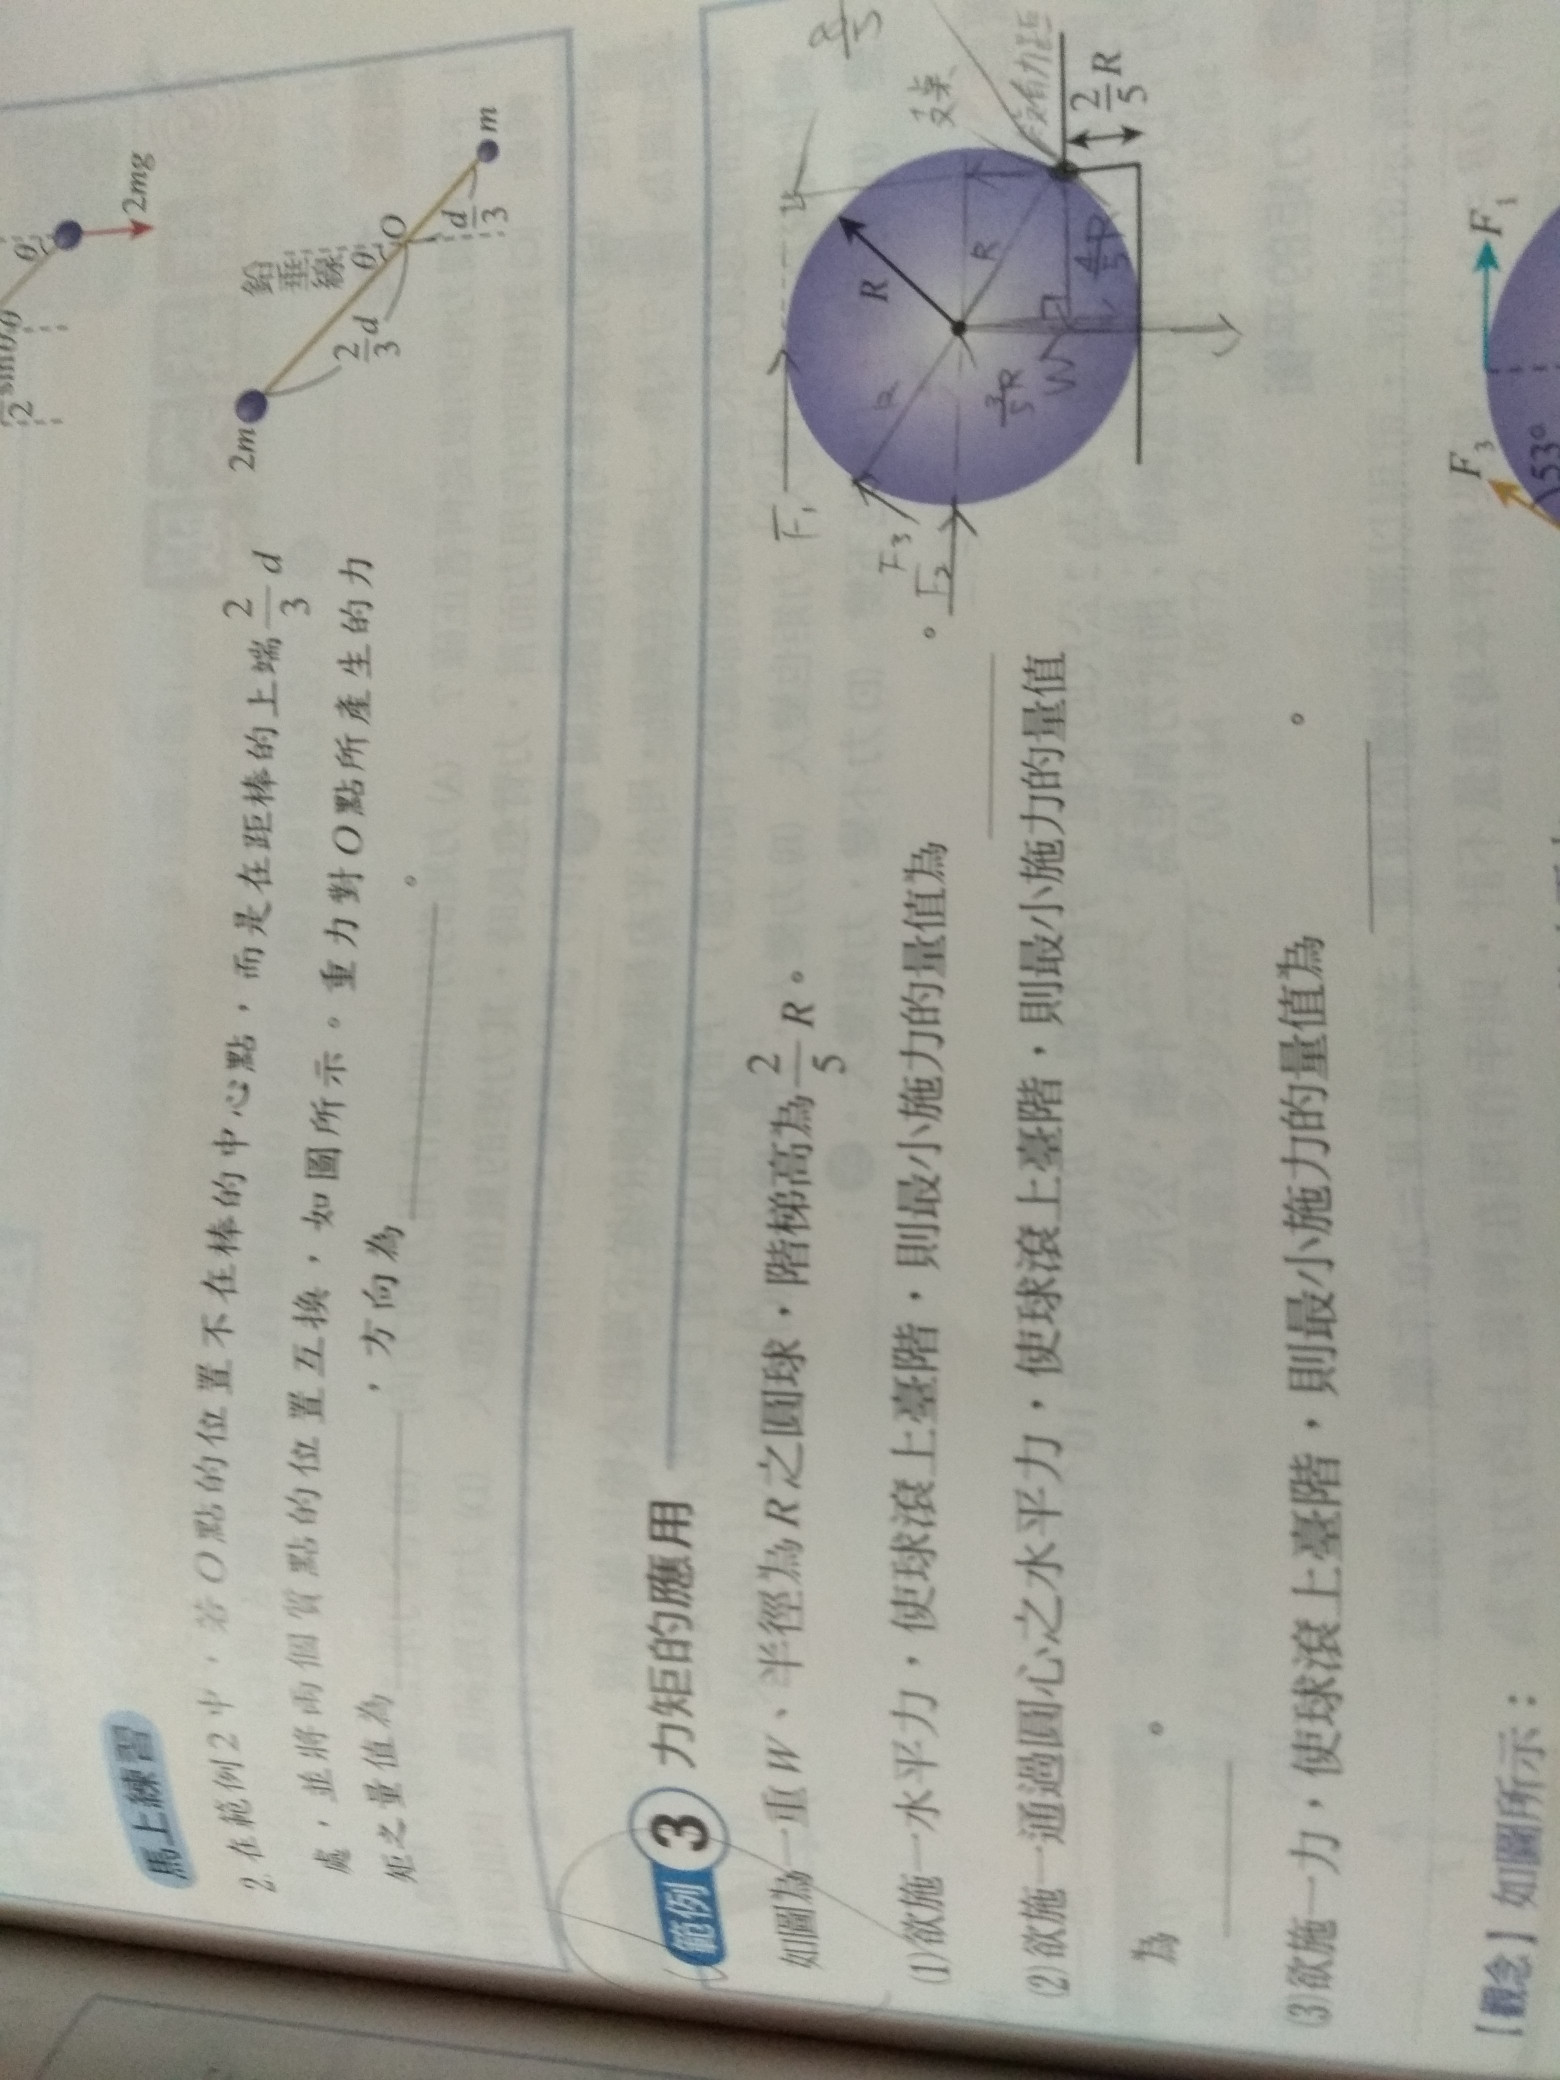 2mg
馬上練習
2. 在範例2中，若O點的位置不在棒的中心點，而是在距棒的上端 2/3 d
處，並將兩個質點的位置互換，如圖所示。重力對O點所產生的力
矩之量值為________，方向為________。
2m
鉛垂線
θ
O
2/3 d
d/3
m
範例 3 力矩的應用
如圖為一重W、半徑為R之圓球，階梯高為 2/5 R。
(1)欲施一水平力，使球滾上臺階，則最小施力的量值為________。
(2)欲施一通過圓心之水平力，使球滾上臺階，則最小施力的量值
為________。
(3)欲施一力，使球滾上臺階，則最小施力的量值為________。
F₁
F₃
F₂
R
R
R
3/5 R
4/5 R
W
支點
沒有力距
2/5 R
【觀念】如圖所示：
F₃
F₁
53°